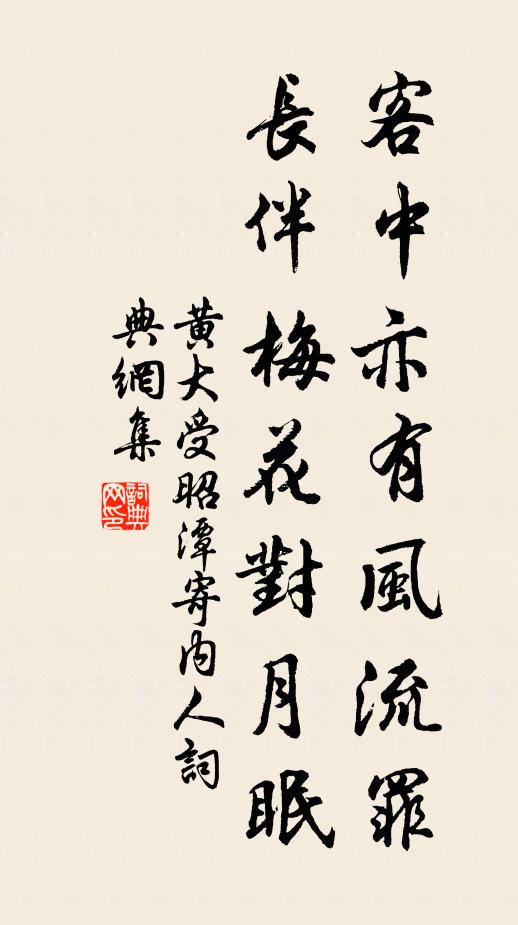 客中亦有風流罪
長伴梅花對月眠
黃大受昭潭寄內人詞
典網集
詞典
网印